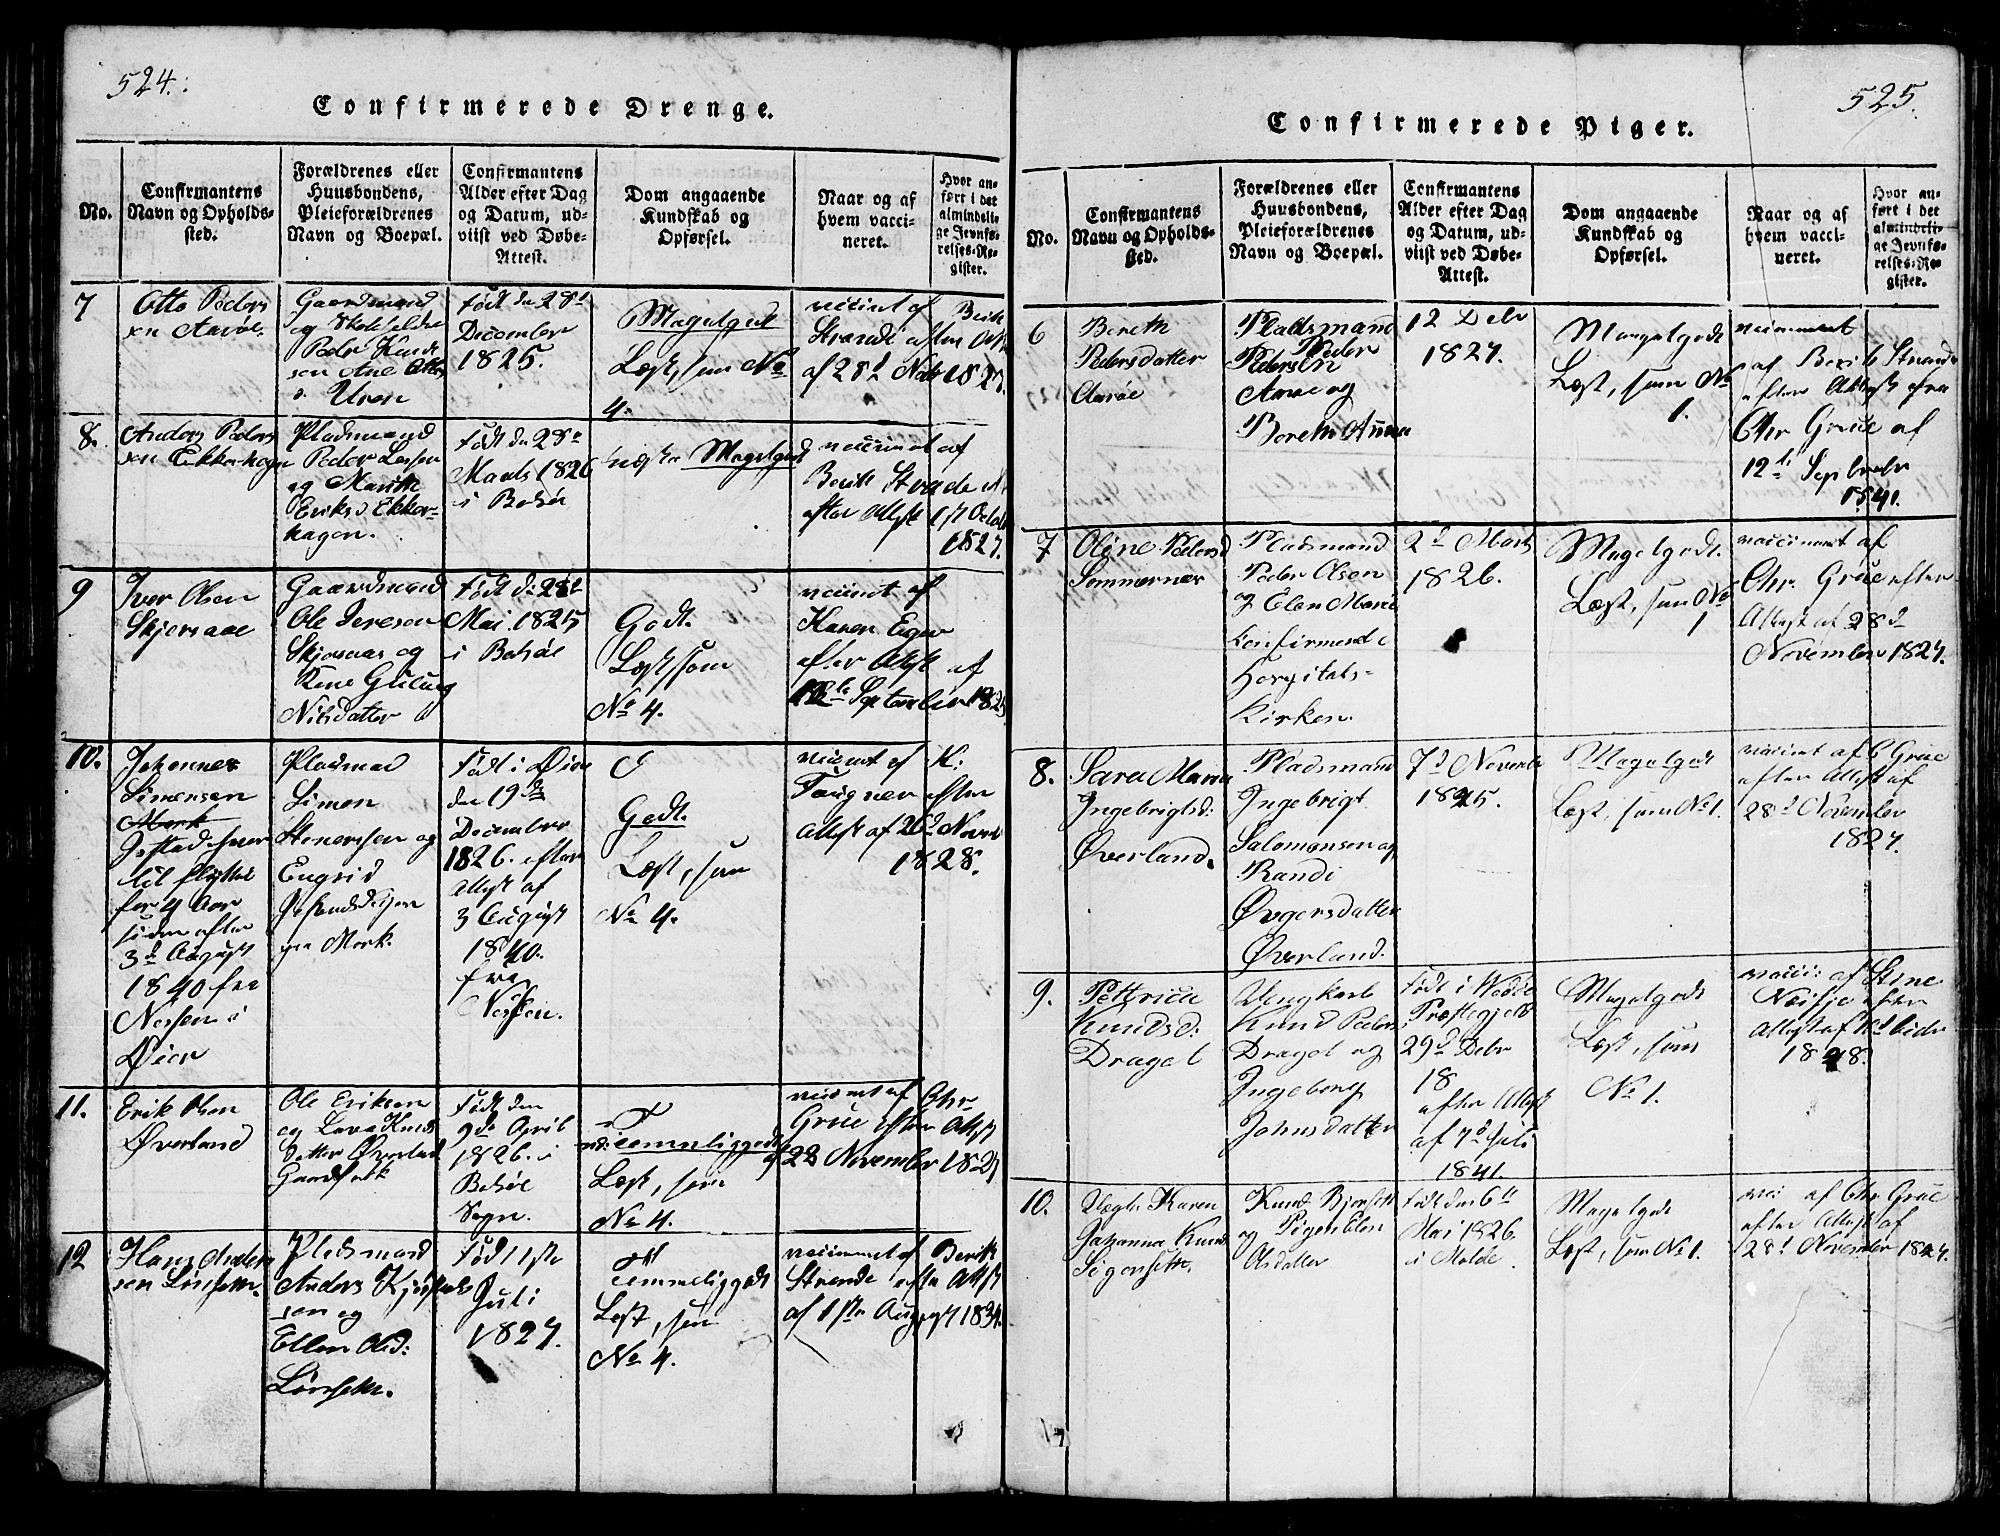 524.
Confirmerede Drenge.
No.
Confirmantens
Navn og Opholds-
sted.
Forældrenes eller
Huusbondens,
Pleieforældrenes
Navn og Boepæl.
Confirmantens
Alder efter Dag
og Datum, ud-
viist ved Døbe-
Attest.
Dom angaaende
Kundskab og
Opførsel.
Naar og af
hvem vacci-
neret.
Hvor an-
ført i det
almindeli-
ge Jevnfø-
relses-Re-
gister.
7
Otto Peders
en Aarøe.
Gaardmand
og
Peder Knud
sen Ane Otts
d. Uren
Født den 28de
December
1825.
Magelgodt
Læst, som No
4.
vaccinet af Berit
Strande efter Attst
af 28d Novbr 1827.
8.
Anders Peders
en Ekkerhagen
Pladsmand
Peder Larsen
og Marith
Eriksd Ekker-
hagen.
Født den 28de
Marts 1826
i Bolsøe
næsten Magelgodt
vaccinet af
Berit Strande
efter Attst 1st Octob
1827.
9
Iver Olsen
Skjorsaae
Gaardmand
Ole Iversen
Skjorsaae og
Nilsdatter
Født d. 28de
Mai 1825
i Bolsøe
Godt.
Læst som
No 4.
vaccinet af
Karen
efter Attst af
12te September 182
10.
Johannes
Simensen
Mork
til flyttet
for 4 Aar
siden efter
3d August
1840 fra
Nossen i
Øier
Pladsmand
Simon
Stenerssen og
Engrid
Mork.
Født i Øier
den 19de
December
1826. efter
Attest af
3 August
1840.
fra
Nossen.
Godt.
Læst, som
No 4.
vaccinet af K:
Taugner efter
Attst af 26d Novbr
1828.
11.
Erik Olsen
Øverland
Ole Eriksen
og Lava Knuds
datter Øverland
Gaardfolk
Født den
9de April
1826. i
Bolsøe
Sogn.
Temmeliggodt
Læst, som
No 4.
vaccinet af Chr
Grue efter Attst
af 28 November 1827
12
Hans Ander
sen Lønseth.
Pladsmand
Anders
sen og
Ellen Olsd:
Lønseth.
Født 1ste
Juli
1827.
Temmeliggodt
Læst, som
No 4.
vaccinnet af Berit
Strande efter Attst
af 1ste August 1834.
525.
Confirmerede Piger.
No.
Confirmantens
Navn og Opholds-
sted.
Forældrenes eller
Huusbondens,
Pleieforældrenes
Navn og Boepæl.
Confirmantens
Alder efter Dag
og Datum, ud-
viist ved Døbe-
Attest.
Dom angaaende
Kundskab og
Opførsel.
Naar og af
hvem vacci-
neret.
Hvor an-
ført i det
almindeli-
ge Jevnfø-
relses-Re-
gister.
6
Bereth
Pedersdatter
Aarøe
Pladsmand
Peder
Pedersen
Aarøe og
Bereth Anna
12 Debr
1827.
Magelgodt
Læst, som No
1.
vaccinneret
af Berith Strande
efter Attest fra
Chr Grue af
12te Septembr
1841.
7
Oline Pedersd
Sommernæs
Pladsmand
Peder Olsen
og Elen Marie
Confirmered i
Hospitals-
Kirken.
2d Marts
1826.
Magelgodt.
Læst, som No
1
vaccineret af
Chr. Grue efter
Attest af 28d
November 1827.
8.
Sara Maria
Ingebrigtsd:
Øverland.
Pladsmand
Ingebrigt
Salomonsen og
Randi
Øvgersdatter
Øverland.
7d Novembr
1825.
Magelgodt
Læst, som No 1.
vaccinet af C Grue
efter Attst af
28d November
1827.
9.
Pettrica
Knudsd:
Draget
Ungkarl
Knud Peders
Draget og
Ingeborg
Johnsdatter
Født i Wedøe
Præstegjeld
29d Debr
18
efter Attst
af 7d Juli
1841.
Magelgodt
Læst, som
No 1.
af Stine
efter
Attst af
1828.
10.
Uegte Karen
Johanna Knuds
Sigerseth.
Knud Bjørseth
og Pigen Elen
Olsdatter
Født den 6te
Mai 1826.
i Molde.
Magelgodt
Læst, som No 1.
vacc af Chr Grue
efter Attst af
28d November 1827.